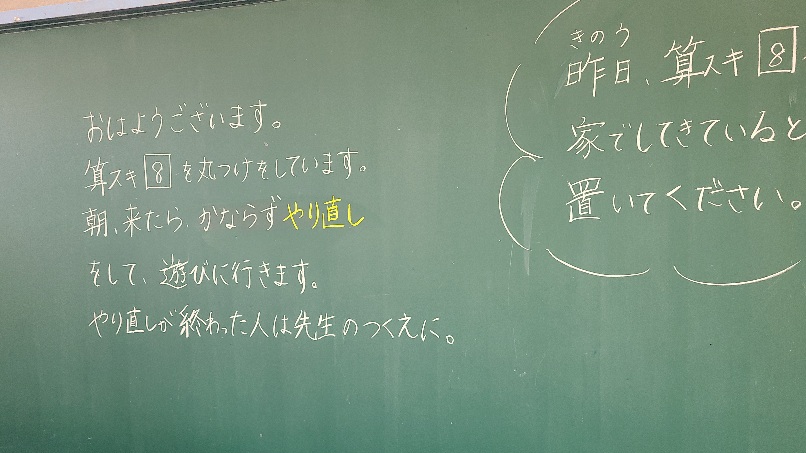 おはようございます。
算スキ8を丸つけをしています。
朝、来たら、かならずやり直し
をして、遊びに行きます。
やり直しが終わった人は先生のつくえに。
きのう
昨日、算スキ8
家でしてきていると
置いてください。